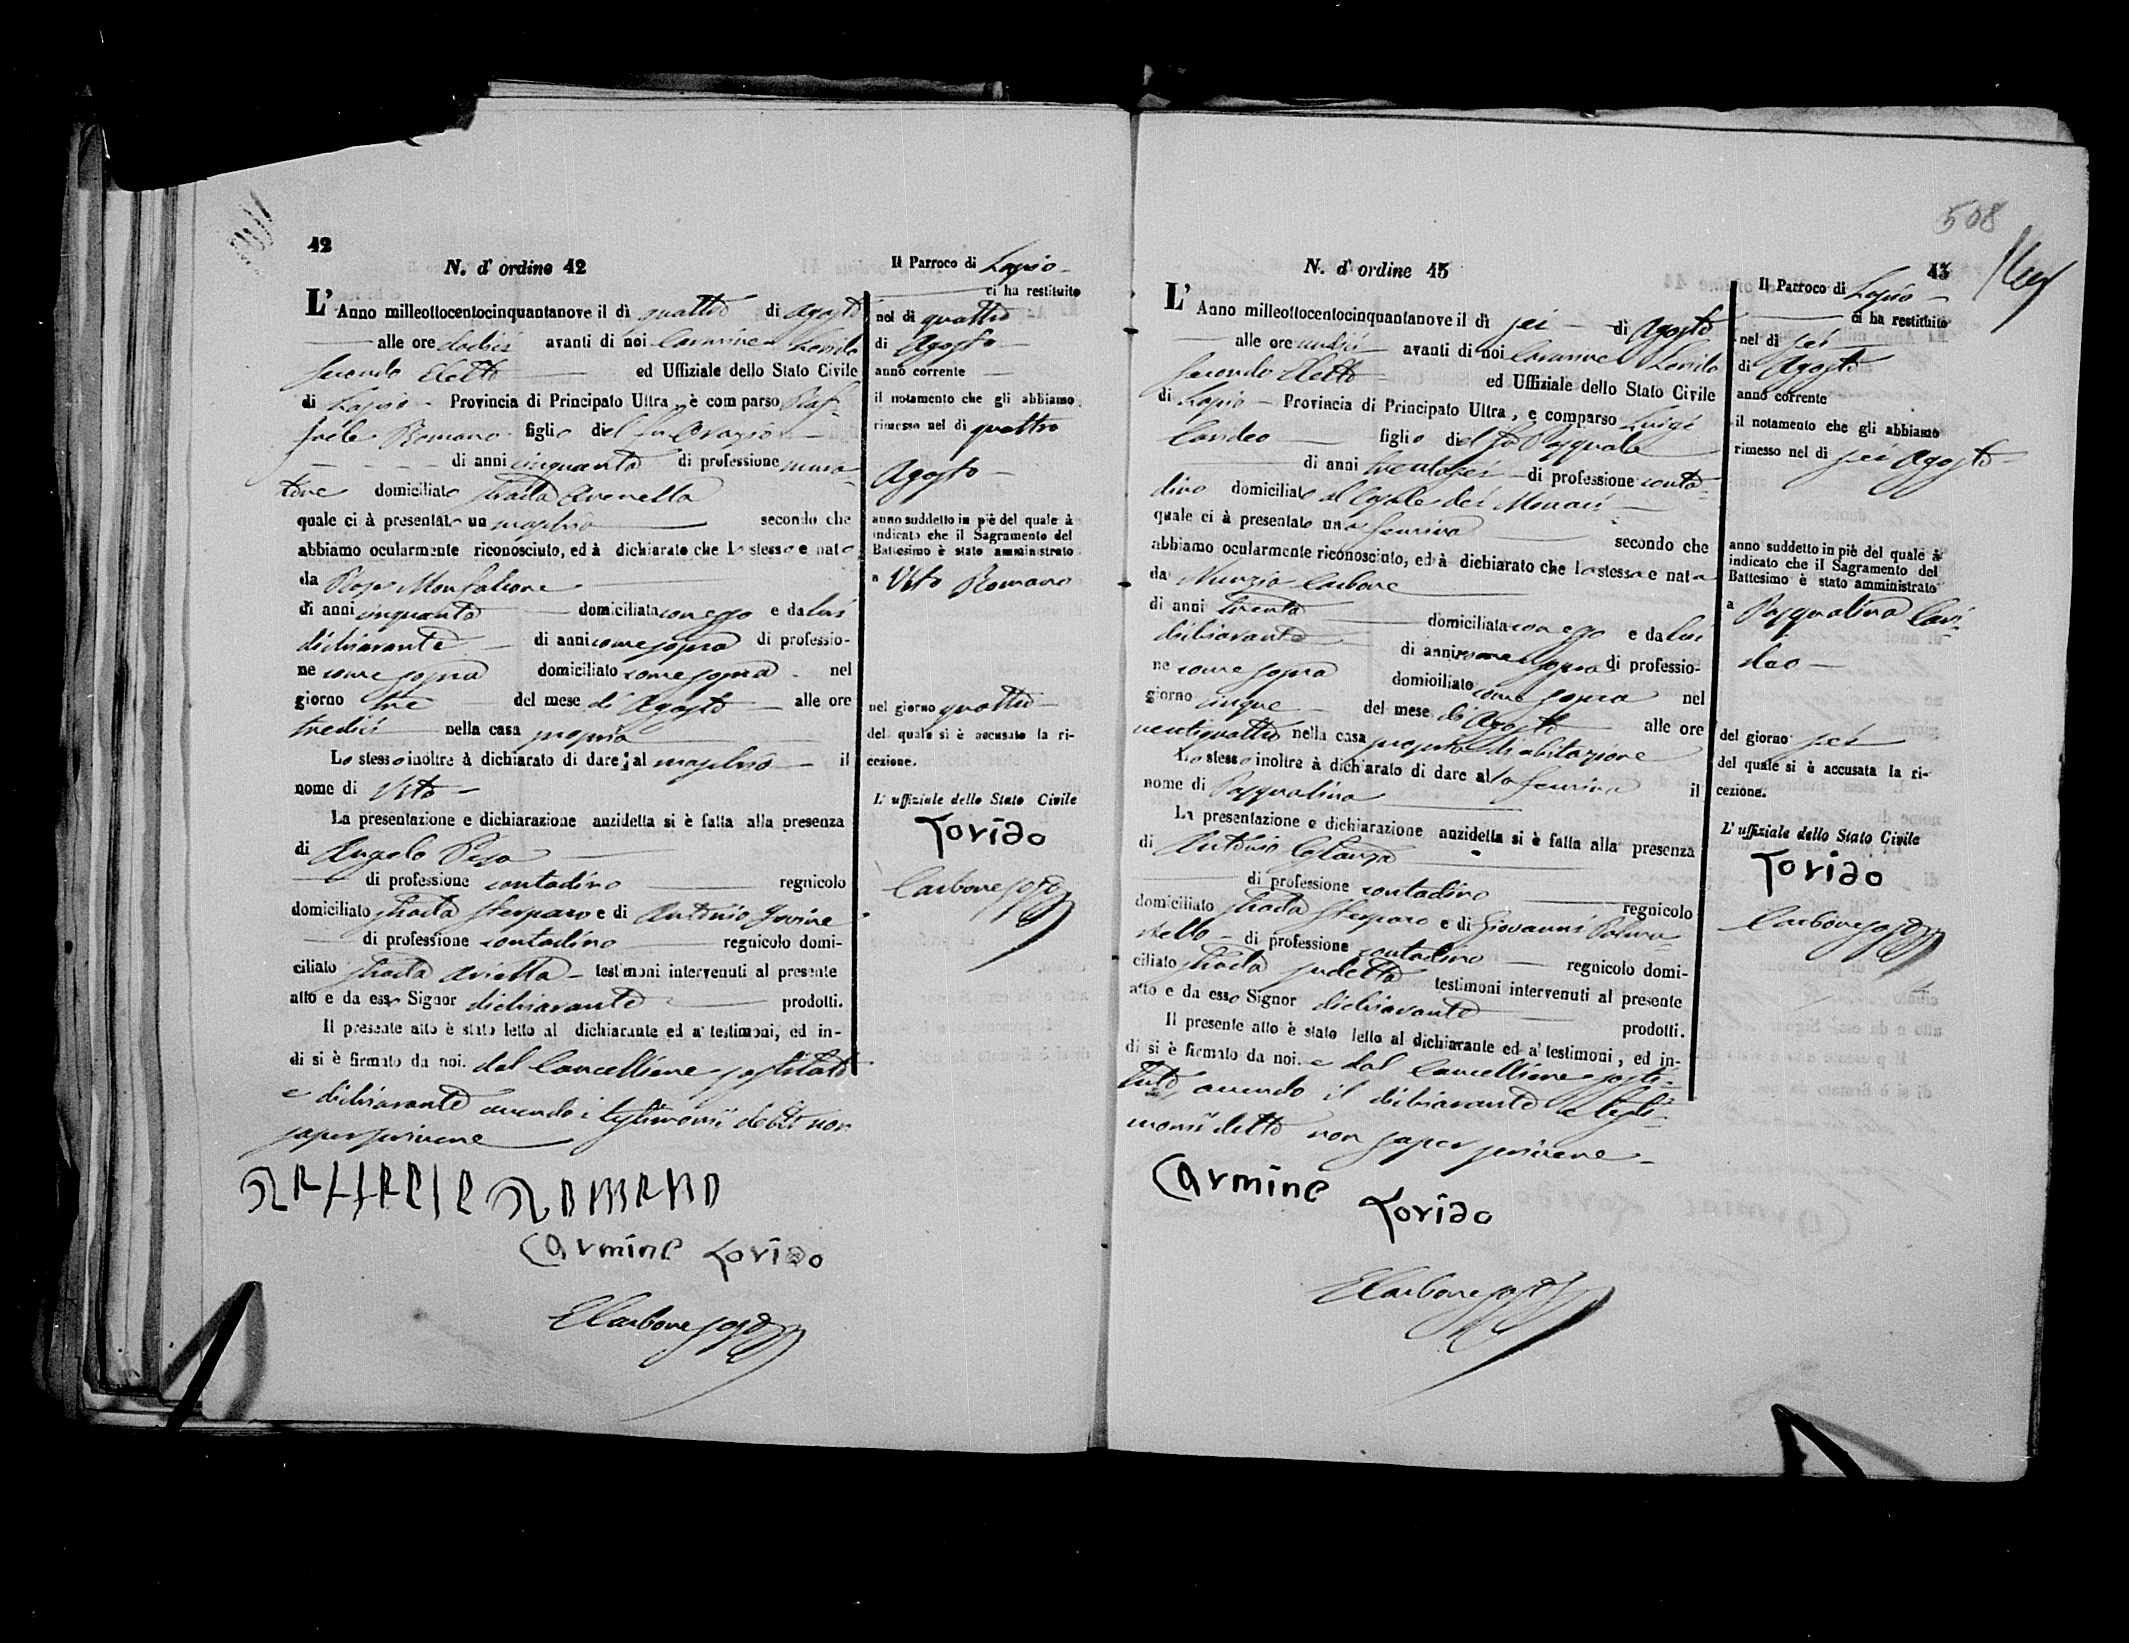 42
N. d' ordine 42
L' Anno milleottocentocinquantanove il dì quattro di Agosto
alle ore dodici avanti di noi Carmine Lorido
secondo Eletto ed Uffiziale dello Stato Civile
di Lapio Provincia di Principato Ultra, è comparso Raf-
faele Romano figlio del fu Orazio
di anni cinquanta di professione mura-
tore domiciliato strada Arenella
quale ci à presentato un maschio secondo che
abbiamo ocularmente riconosciuto, ed à dichiarato che lo stesso e nato
da Rosa Monfalcone
di anni cinquanta domiciliata con esso e da lui
dichiarante di anni come sopra di professio-
ne come sopra domiciliato come sopra nel
giorno tre del mese di Agosto alle ore
tredici nella casa propria
Lo stesso inoltre à dichiarato di dare al maschio il
nome di Vito
La presentazione e dichiarazione anzidetta si è fatta alla presenza
di Angelo
di professione contadino regnicolo
domiciliato strada e di Antonio Iovine
di professione contadino regnicolo domi-
ciliato strada testimoni intervenuti al presente
atto e da esso Signor dichiarante prodotti.
Il presente atto è stato letto al dichiarante ed a' testimoni, ed in-
di si è firmato da noi. dal Cancelliere sostituto
e dichiarante avendo i testimonii detto non
saper scrivere
RAFFAELE ROMANO
Carmine Lorido
ECarbone sosto
Il Parroco di Lapio
ci ha restituito
nel di quattro
di Agosto
anno corrente
il notamento che gli abbiamo
rimesso nel di quattro
Agosto
anno suddetto in piè del quale à
indicato che il Sagramento del
Battesimo è stato amministrato
a Vito Romano
nel giorno quattro
del quale si è accusato la ri-
cezione.
L' uffiziale dello Stato Civile
Lorido
Carbone sosto
508
43
N. d' ordine 43
L' Anno milleottocentocinquantanove il dì sei di Agosto
alle ore undici avanti di noi Carmine Lorido
secondo Eletto ed Uffiziale dello Stato Civile
di Lapio Provincia di Principato Ultra, e comparso Luigi
Carideo figlio del fu Pasquale
di anni trentasei di professione conta-
dino domiciliato al Casale dei Monaci
quale ci à presentato una femina secondo che
abbiamo ocularmente riconosciuto, ed à dichiarato che la stessa e nata
da Nunzia Carbone
di anni trenta domiciliata con esso e da lui
dichiarante di anni come sopra di professio-
ne come sopra domiciliato come sopra nel
giorno cinque del mese di Agosto alle ore
ventiquattro nella casa propria di abitazione
Lo stesso inoltre à dichiarato di dare alla femina il
nome di Pasqualina
La presentazione e dichiarazione anzidetta si è fatta alla presenza
di Antonio Costanza
di professione contadino regnicolo
domiciliato strada e di Giovanni
di professione contadino regnicolo domi-
ciliato strada testimoni intervenuti al presente
atto e da esso Signor dichiarante prodotti.
Il presente atto è stato letto al dichiarante ed a' testimoni, ed in-
di si è firmato da noi. e dal Cancelliere sosti-
tuto avendo il dichiarante e testi-
monii detto non saper scrivere
Carmine Lorido
ECarbone sosto
Il Parroco di Lapio
ci ha restituito
nel di sei
di Agosto
anno corrente
il notamento che gli abbiamo
rimesso nel di sei Agosto
anno suddetto in piè del quale à
indicato che il Sagramento del
Battesimo è stato amministrato
a Pasqualina Cari-
deo
del giorno sei
del quale si è accusata la ri-
cezione.
L' uffiziale dello Stato Civile
Lorido
Carbone sosto